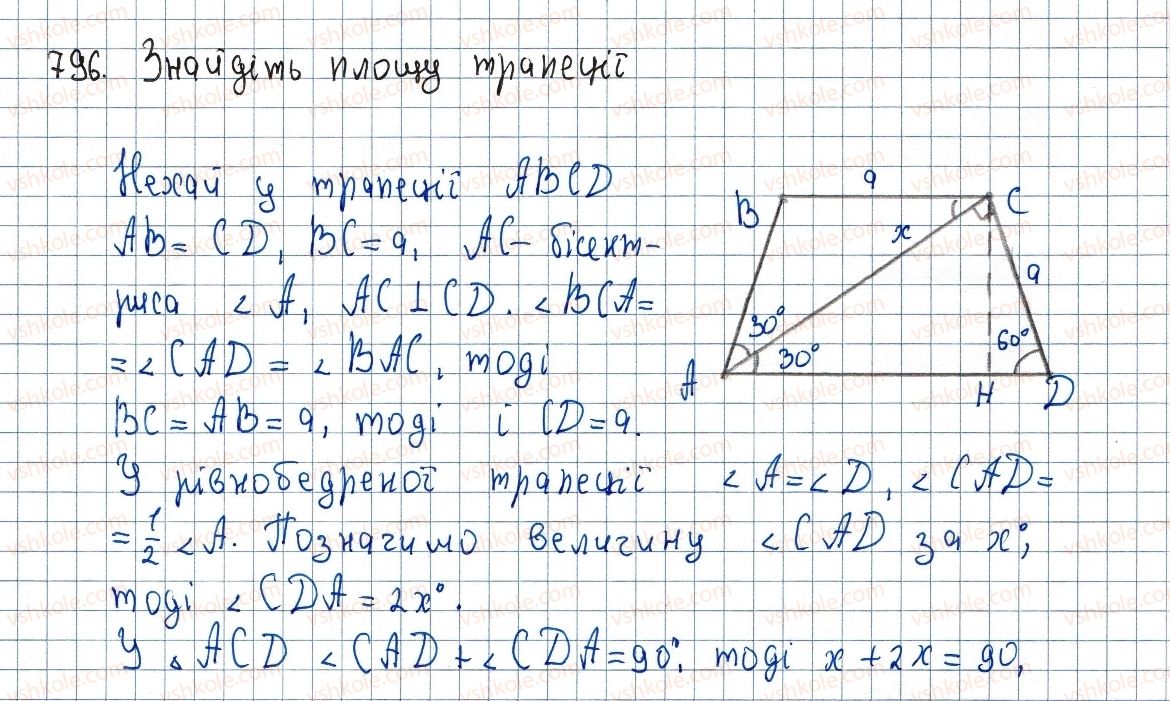 796. Знайдіть площу трапеції
Нехай у трапеції ABCD
AB = CD, BC = a, AC - бісект-
риса ∠A, AC ⊥ CD. ∠BCA =
= ∠CAD = ∠BAC, тоді
BC = AB = a, тоді і CD = a.
У рівнобедреної трапеції ∠A = ∠D, ∠CAD =
= 1/2 ∠A. Позначимо величину ∠CAD за x°,
тоді ∠CDA = 2x°.
У △ACD ∠CAD + ∠CDA = 90°, тоді x + 2x = 90,
a
B
C
x
a
30°
30°
60°
A
H
D